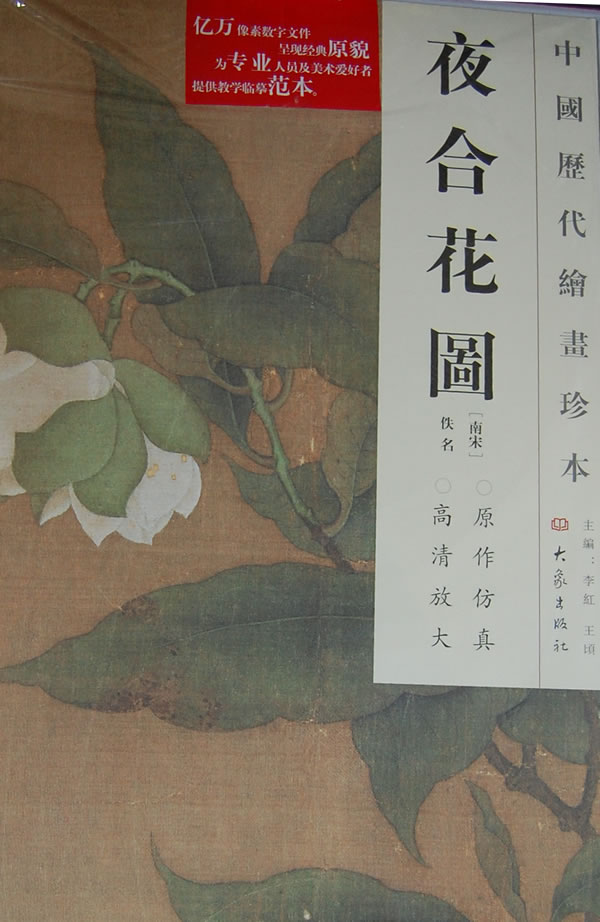 亿万像素数字文件
呈现经典原貌
为专业人员及美术爱好者
提供教学临摹范本。
中國歷代繪畫珍本
夜合花圖
[南宋]
佚名
○原作仿真
○高清放大
主編：李紅 王頃
大象出版社